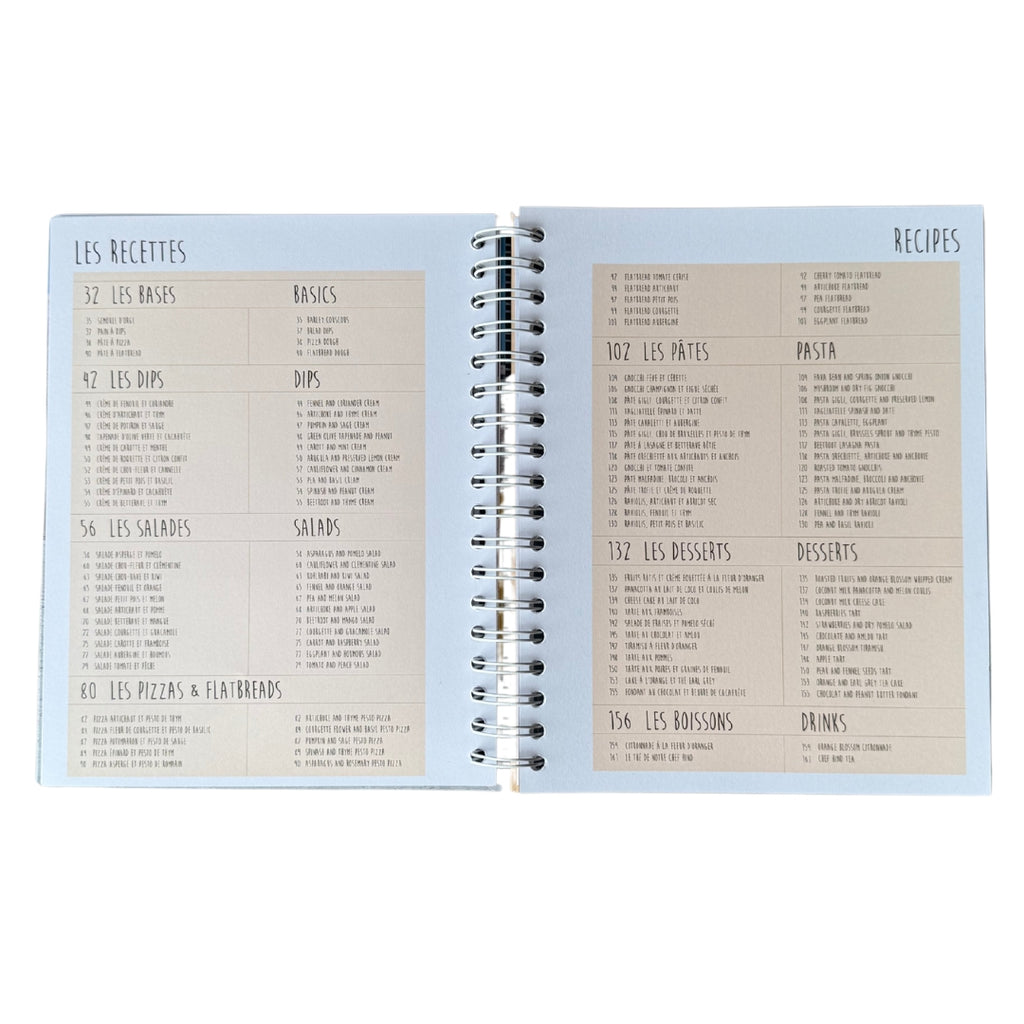 LES RECETTES
32 LES BASES BASICS
35 SEMOULE D'ORGE 35 BARLEY COUSCOUS
37 PAIN À DIPS 37 BREAD DIPS
38 PÂTE À PIZZA 38 PIZZA DOUGH
40 PÂTE À FLATBREAD 40 FLATBREAD DOUGH
42 LES DIPS DIPS
44 CRÈME DE FENOUIL ET CORIANDRE 44 FENNEL AND CORIANDER CREAM
46 CRÈME D'ARTICHAUT ET THYM 46 ARTICHOKE AND THYME CREAM
47 CRÈME DE POTIRON ET SAUGE 47 PUMPKIN AND SAGE CREAM
48 TAPENADE D'OLIVE VERTE ET CACAHUÈTE 48 GREEN OLIVE TAPENADE AND PEANUT
49 CRÈME DE CAROTTE ET MENTHE 49 CAROT AND MINT CREAM
50 CRÈME DE ROQUETTE ET CITRON CONFIT 50 ARUGULA AND PRESERVED LEMON CREAM
52 CRÈME DE CHOU-FLEUR ET CANNELLE 52 CAULIFLOWER AND CINNAMON CREAM
53 CRÈME DE PETIT POIS ET BASILIC 53 PEA AND BASIL CREAM
54 CRÈME D'ÉPINARD ET CACAHUÈTE 54 SPINASH AND PEANUT CREAM
55 CRÈME DE BETTERAVE ET THYM 55 BEETROOT AND THYME CREAM
56 LES SALADES SALADS
58 SALADE ASPERGE ET POMELO 58 ASPARAGUS AND POMELO SALAD
60 SALADE CHOU-FLEUR ET CLÉMENTINE 60 CAULIFLOWER AND CLEMENTINE SALAD
63 SALADE CHOU-RAVE ET KIWI 63 KOHLRABI AND KIWI SALAD
65 SALADE FENOUIL ET ORANGE 65 FENNEL AND ORANGE SALAD
67 SALADE PETIT POIS ET MELON 67 PEA AND MELON SALAD
68 SALADE ARTICHAUT ET POMME 68 ARTICHOKE AND APPLE SALAD
70 SALADE BETTERAVE ET MANGUE 70 BEETROOT AND MANGO SALAD
72 SALADE COURGETTE ET GUACAMOLE 72 COURGETTE AND GUACAMOLE SALAD
75 SALADE CAROTTE ET FRAMBOISE 75 CARROT AND RASPBERRY SALAD
77 SALADE AUBERGINE ET HOUMOUS 77 EGGPLANT AND HOUMOUS SALAD
79 SALADE TOMATE ET PÊCHE 79 TOMATO AND PEACH SALAD
80 LES PIZZAS & FLATBREADS
82 PIZZA ARTICHAUT ET PESTO DE THYM 82 ARTICHOKE AND THYME PESTO PIZZA
84 PIZZA FLEUR DE COURGETTE ET PESTO DE BASILIC 84 COURGETTE FLOWER AND BASIL PESTO PIZZA
87 PIZZA POTIMARRON ET PESTO DE SAUGE 87 PUMPKIN AND SAGE PESTO PIZZA
89 PIZZA ÉPINARD ET PESTO DE THYM 89 SPINASH AND THYME PESTO PIZZA
90 PIZZA ASPERGE ET PESTO DE ROMARIN 90 ASPARAGUS AND ROSEMARY PESTO PIZZA
RECIPES
92 FLATBREAD TOMATE CERISE 92 CHERRY TOMATO FLATBREAD
94 FLATBREAD ARTICHAUT 94 ARTICHOKE FLATBREAD
97 FLATBREAD PETIT POIS 97 PEA FLATBREAD
99 FLATBREAD COURGETTE 99 COURGETTE FLATBREAD
101 FLATBREAD AUBERGINE 101 EGGPLANT FLATBREAD
102 LES PÂTES PASTA
104 GNOCCHI FÈVE ET CÉBETTE 104 FAVA BEAN AND SPRING ONION GNOCCHI
106 GNOCCHI CHAMPIGNON ET FIGUE SÉCHÉE 106 MUSHROOM AND DRY FIG GNOCCHI
108 PÂTE GIGLI, COURGETTE ET CITRON CONFIT 108 PASTA GIGLI, COURGETTE AND PRESERVED LEMON
111 TAGLIATELLE ÉPINARD ET DATTE 111 TAGLIATELLE SPINASH AND DATE
113 PÂTE CAPPLETTI ET AUBERGINE 113 PASTA CAPPLETTI, EGGPLANT
115 PÂTE GIGLI, CHOU DE BRUXELLES ET PESTO DE THYM 115 PASTA GIGLI, BRUSSELS SPROUT AND THYME PESTO
117 PÂTE À LASAGNE ET BETTERAVE RÔTIE 117 BEETROOT LASAGNA PASTA
118 PÂTE ORECHIETTE AUX ARTICHAUTS ET ANCHOIS 118 PASTA ORECHIETTE, ARTICHOKE AND ANCHOVIE
120 GNOCCHI ET TOMATE CONFITE 120 ROASTED TOMATO GNOCCHIS
123 PÂTE MALFADINE, BROCOLI ET ANCHOIS 123 PASTA MALFADINE, BROCCOLI AND ANCHOVIE
125 PÂTE TROFIE ET CRÈME DE ROQUETTE 125 PASTA TROFIE AND ARUGULA CREAM
126 RAVIOLIS, ARTICHAUT ET ABRICOT SEC 126 ARTICHOKE AND DRY ABRICOT RAVIOLI
128 RAVIOLIS, FENOUIL ET THYM 128 FENNEL AND THYM RAVIOLI
130 RAVIOLIS, PETIT POIS ET BASILIC 130 PEA AND BASIL RAVIOLI
132 LES DESSERTS DESSERTS
135 FRUITS RÔTIS ET CRÈME FOUETTÉE À LA FLEUR D'ORANGER 135 ROASTED FRUITS AND ORANGE BLOSSOM WHIPPED CREAM
137 PANACOTTA AU LAIT DE COCO ET COULIS DE MELON 137 COCONUT MILK PANACOTTA AND MELON COULIS
139 CHEESE CAKE AU LAIT DE COCO 139 COCONUT MILK CHEESE CAKE
140 TARTE AUX FRAMBOISES 140 RASPBERRIES TART
142 SALADE DE FRAISES ET POMELO SÉCHÉ 142 STRAWBERRIES AND DRY POMELO SALAD
145 TARTE AU CHOCOLAT ET AMLOU 145 CHOCOLATE AND AMLOU TART
147 TIRAMISU À FLEUR D'ORANGER 147 ORANGE BLOSSOM TIRAMISU
148 TARTE AUX POMMES 148 APPLE TART
150 TARTE AUX POIRES ET GRAINES DE FENOUIL 150 PEAR AND FENNEL SEEDS TART
153 CAKE À L'ORANGE ET THÉ EARL GREY 153 ORANGE AND EARL GREY TEA CAKE
155 FONDANT AU CHOCOLAT ET BEURRE DE CACAHUÈTE 155 CHOCOLAT AND PEANUT BUTTER FONDANT
156 LES BOISSONS DRINKS
159 CITRONNADE À LA FLEUR D'ORANGER 159 ORANGE BLOSSOM CITRONNADE
161 LE THÉ DE NOTRE CHEF HIND 161 CHEF HIND TEA